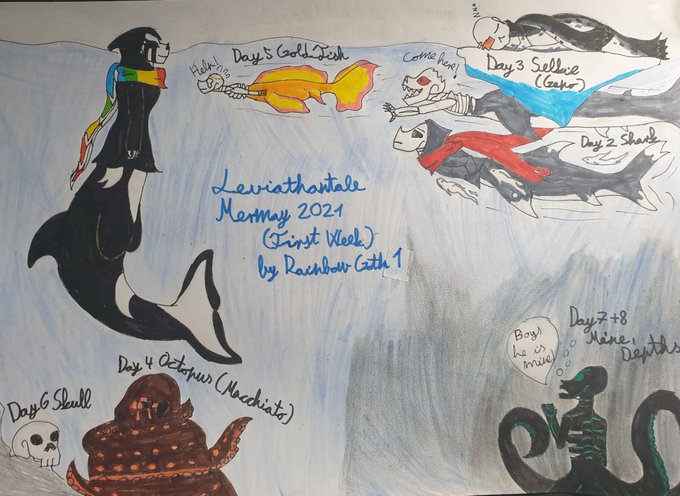 zzz
Day 5 Goldfish
Help!
Come here!
Day 3 Selkie
(Gero)
Day 2 Shark
Leviathantale
Mermay 2021
(First Week)
by Rainbow Goth 1
Day 7+8
Mine,
Depths
Boys!
he is
mine!
Day 4 Octopus (Macchiato)
Day 6 Skull